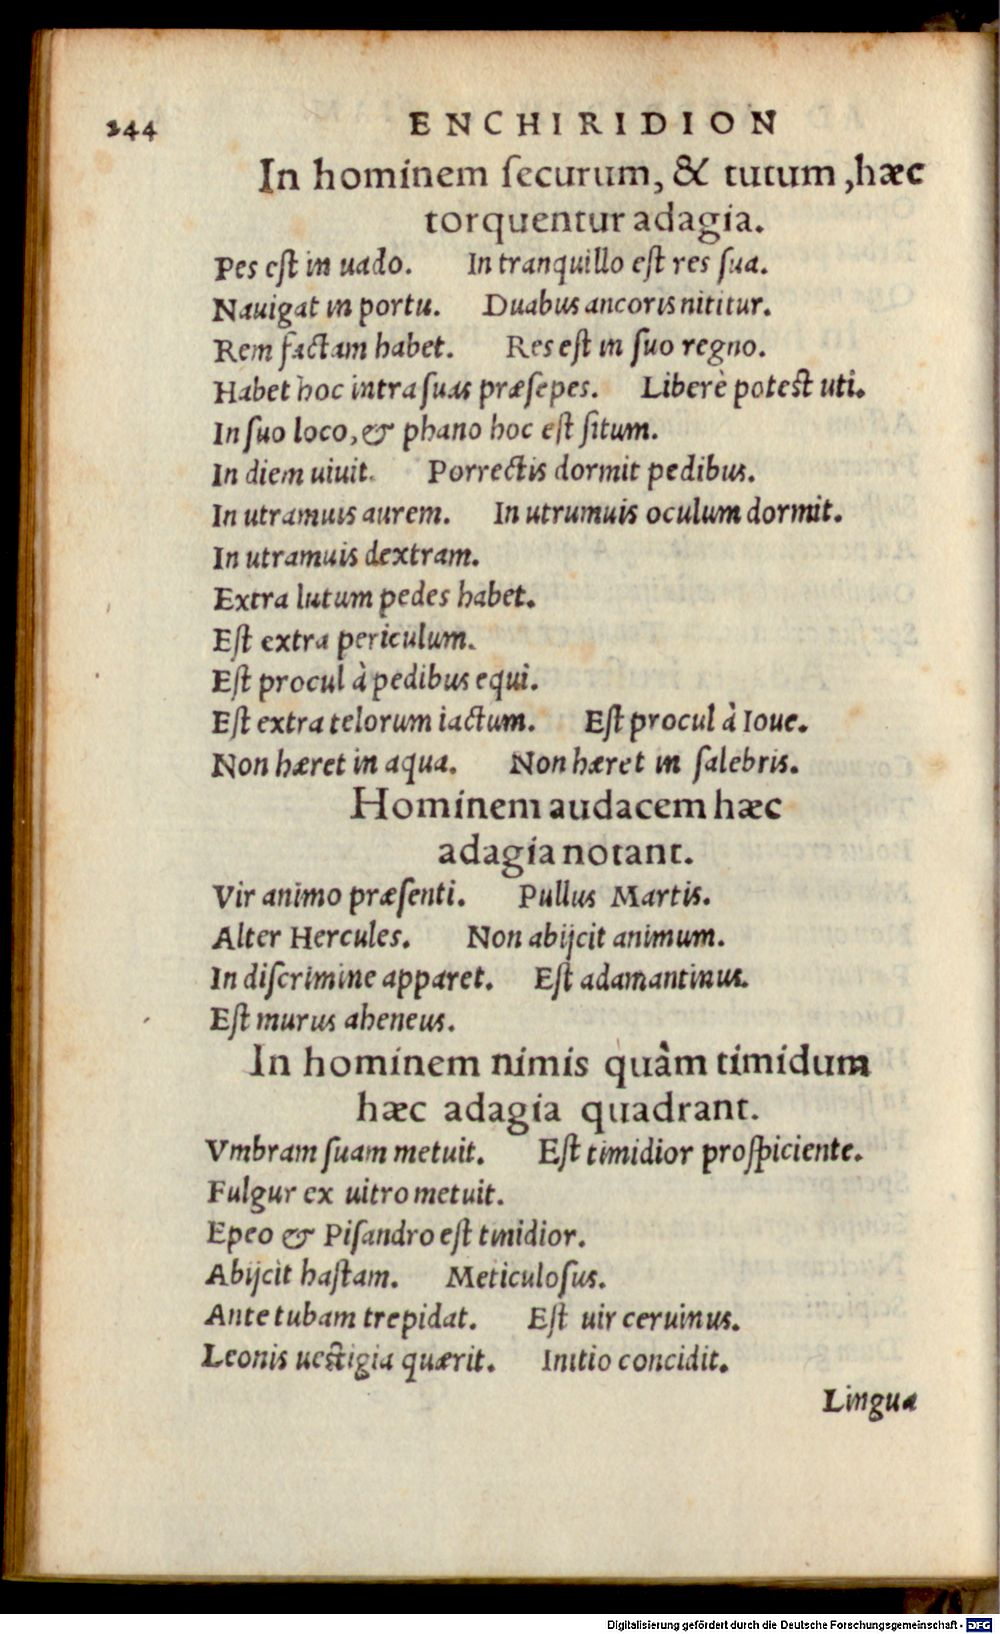 244 ENCHIRIDION
In hominem ſecurum, & tutum, hæc
torquentur adagia.
Pes eſt in uado. In tranquillo eſt res ſua.
Nauigat in portu. Duabus ancoris nititur.
Rem factam habet. Res eſt in ſuo regno.
Habet hoc intra ſuas præſepes. Liberè poteſt uti.
In ſuo loco, & phano hoc eſt ſitum.
In diem uiuit. Porrectis dormit pedibus.
In utramuis aurem. In utrumuis oculum dormit.
In utramuis dextram.
Extra lutum pedes habet.
Eſt extra periculum.
Eſt procul à pedibus equi.
Eſt extra telorum iactum. Eſt procul à Ioue.
Non hæret in aqua. Non hæret in ſalebris.
Hominem audacem hæc
adagia notant.
Vir animo præſenti. Pullus Martis.
Alter Hercules. Non abijcit animum.
In diſcrimine apparet. Eſt adamantinus.
Eſt murus aheneus.
In hominem nimis quàm timidum
hæc adagia quadrant.
Vmbram ſuam metuit. Eſt timidior proſpiciente.
Fulgur ex uitro metuit.
Epeo & Piſandro eſt timidior.
Abijcit haſtam. Meticuloſus.
Ante tubam trepidat. Eſt uir ceruinus.
Leonis ueſtigia quærit. Initio concidit.
Lingua
Digitalisierung gefördert durch die Deutsche Forschungsgemeinschaft - DFG